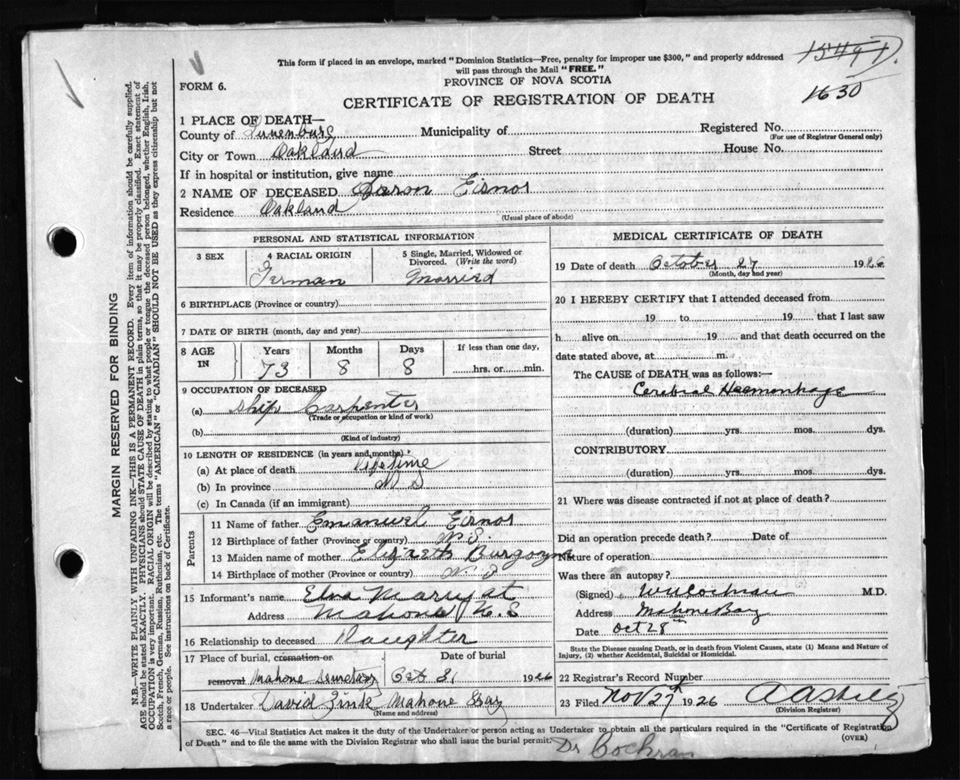 This form if placed in an envelope, marked "Dominion Statistics—Free, penalty for improper use $300," and properly addressed
will pass through the Mail "FREE."
1630
FORM 6.
PROVINCE OF NOVA SCOTIA
CERTIFICATE OF REGISTRATION OF DEATH
1 PLACE OF DEATH—
County of Lunenburg Municipality of Registered No.
(For use of Registrar General only)
City or Town Oakland Street House No.
If in hospital or institution, give name
2 NAME OF DECEASED Aaron Eisnor
Residence Oakland
(Usual place of abode)
PERSONAL AND STATISTICAL INFORMATION
3 SEX 4 RACIAL ORIGIN German 5 Single, Married, Widowed or Divorced. (Write the word) Married
6 BIRTHPLACE (Province or country)
7 DATE OF BIRTH (month, day and year)
8 AGE IN Years Months Days If less than one day,
73 8 8 hrs. or min.
9 OCCUPATION OF DECEASED
(a) Ship Carpenter
(Trade or occupation or kind of work)
(b)
(Kind of industry)
10 LENGTH OF RESIDENCE (in years and months)
(a) At place of death Lifetime
(b) In province
(c) In Canada (if an immigrant)
Parents
11 Name of father Emanuel Eisnor
12 Birthplace of father (Province or country) N. S.
13 Maiden name of mother Elizabeth Burgoyne
14 Birthplace of mother (Province or country) N. S
15 Informant's name Elva
Address Mahone N. S
16 Relationship to deceased Daughter
17 Place of burial, cremation or Date of burial
removal Mahone Cemetery Oct 31 1926
18 Undertaker David Zink Mahone Bay
(Name and address)
MEDICAL CERTIFICATE OF DEATH
19 Date of death October 27 1926
(Month, day and year)
20 I HEREBY CERTIFY that I attended deceased from
19 to 19 that I last saw
h alive on 19 and that death occurred on the
date stated above, at m.
The CAUSE OF DEATH was as follows:—
Cerebral Haemorrhage
(duration) yrs. mos. dys.
CONTRIBUTORY
(duration) yrs. mos. dys.
21 Where was disease contracted if not at place of death?
Did an operation precede death? Date of
Nature of operation
Was there an autopsy?
(Signed) Cochran M.D.
Address Mahone Bay
Date Oct 28th
State the Disease causing Death, or in death from Violent Causes, state (1) Means and Nature of
Injury, (2) whether Accidental, Suicidal or Homicidal.
22 Registrar's Record Number
23 Filed Nov 27th 1926
(Division Registrar)
SEC. 46—Vital Statistics Act makes it the duty of the Undertaker or person acting as Undertaker to obtain all the particulars required in the "Certificate of Registration
of Death" and to file the same with the Division Registrar who shall issue the burial permit. (OVER)
Dr Cochran
MARGIN RESERVED FOR BINDING
N.B.—WRITE PLAINLY WITH UNFADING INK—THIS IS A PERMANENT RECORD. Every item of information should be carefully supplied.
AGE should be stated EXACTLY. PHYSICIANS should STATE CAUSE OF DEATH in plain terms, so that it may be properly classified. Exact statement of
OCCUPATION is very important. RACIAL ORIGIN will be described by stating to what people or tongue the deceased person belonged, whether English, Irish,
Scotch, French, German, Russian, Ruthenian, etc. The terms "AMERICAN" or "CANADIAN" SHOULD NOT BE USED as they express citizenship but not
a race or people. See instructions on back of Certificate.